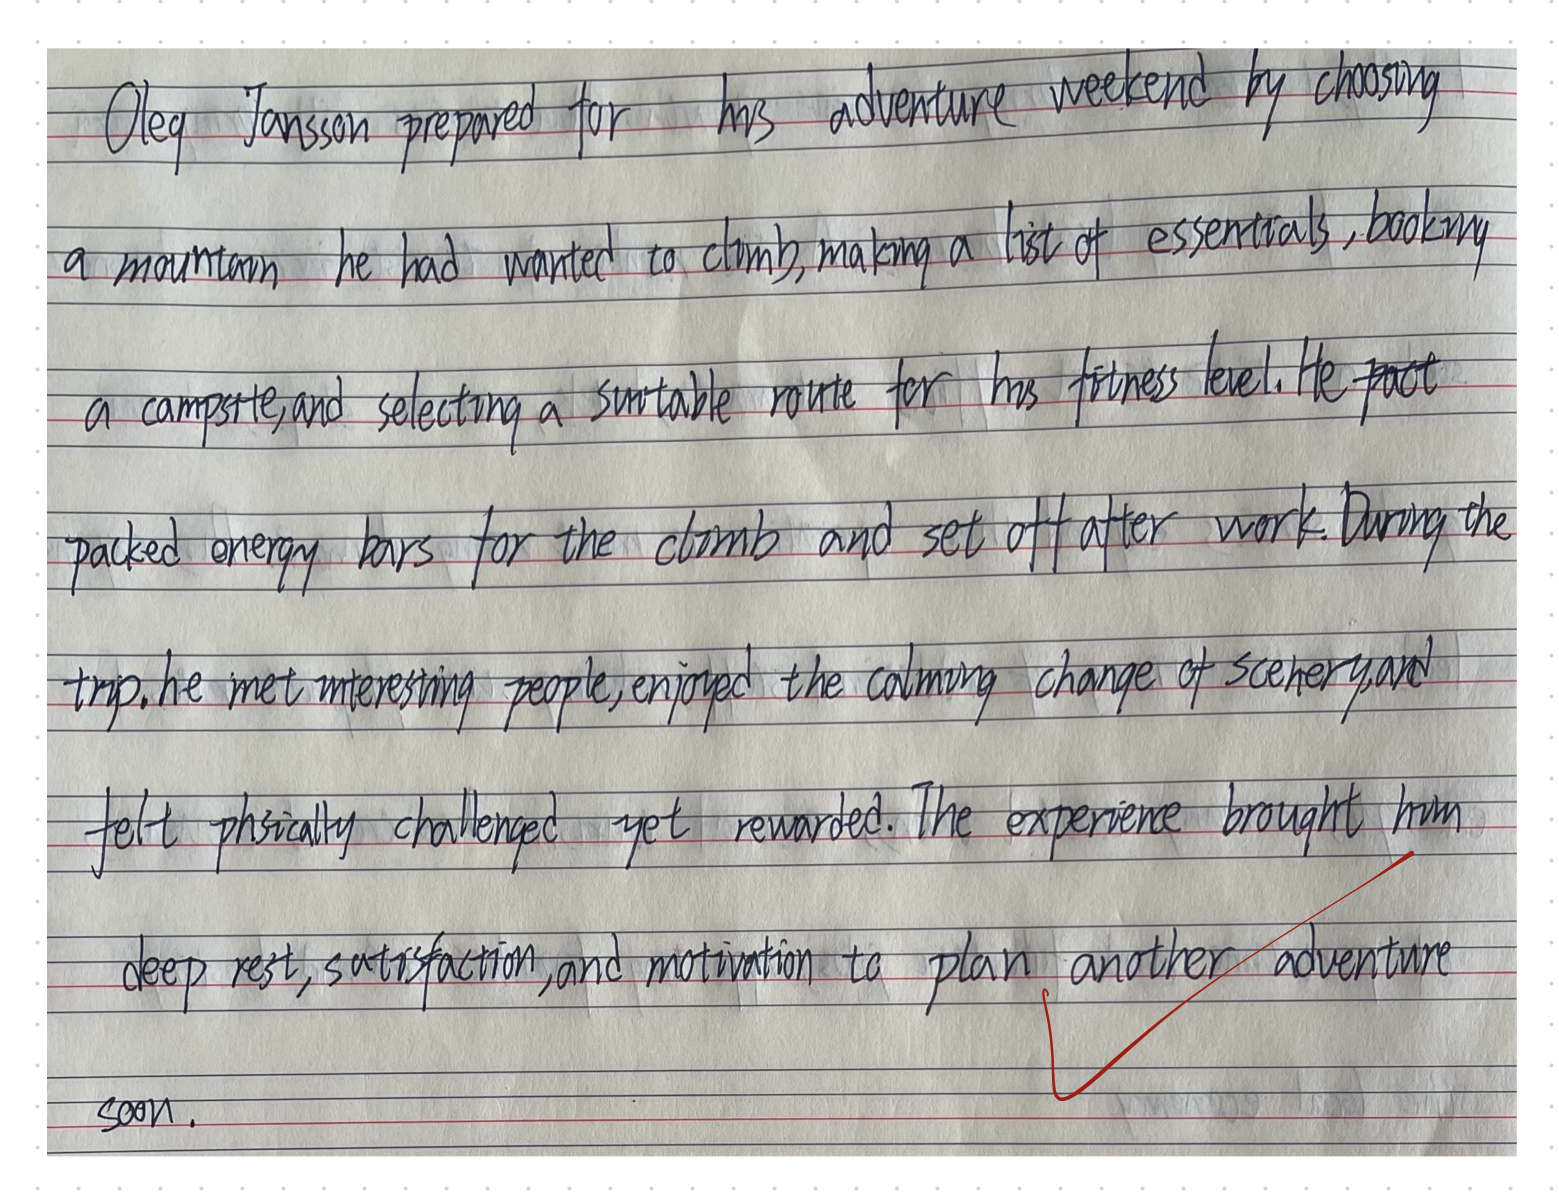 Oleg Jansson prepared for his adventure weekend by choosing
a mountain he had wanted to climb, making a list of essentials, booking
a campsite, and selecting a suitable route for his fitness level. He pact
packed energy bars for the climb and set off after work. During the
trip. he met interesting people, enjoyed the calming change of scenery, and
felt phsically challenged yet rewarded. The experience brought him
deep rest, satisfaction, and motivation to plan another adventure
soon.